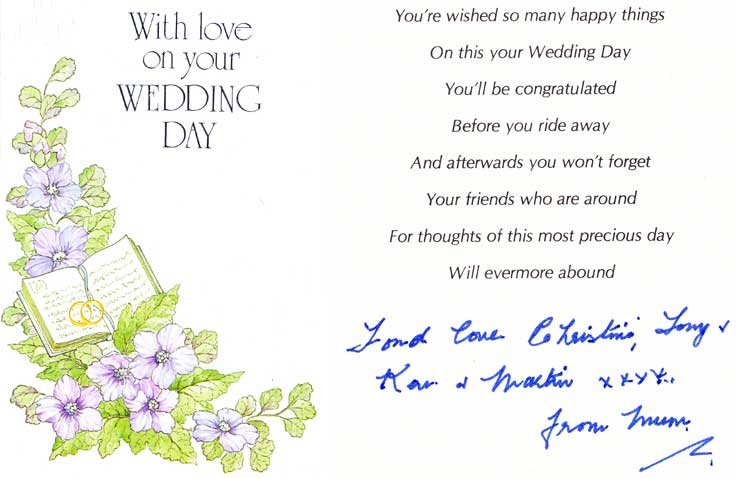 With love
on your
WEDDING
DAY
You're wished so many happy things
On this your Wedding Day
You'll be congratulated
Before you ride away
And afterwards you won't forget
Your friends who are around
For thoughts of this most precious day
Will evermore abound
Fond Love Christine, Tony &
Kev & Martin xxxx..
From Mum.